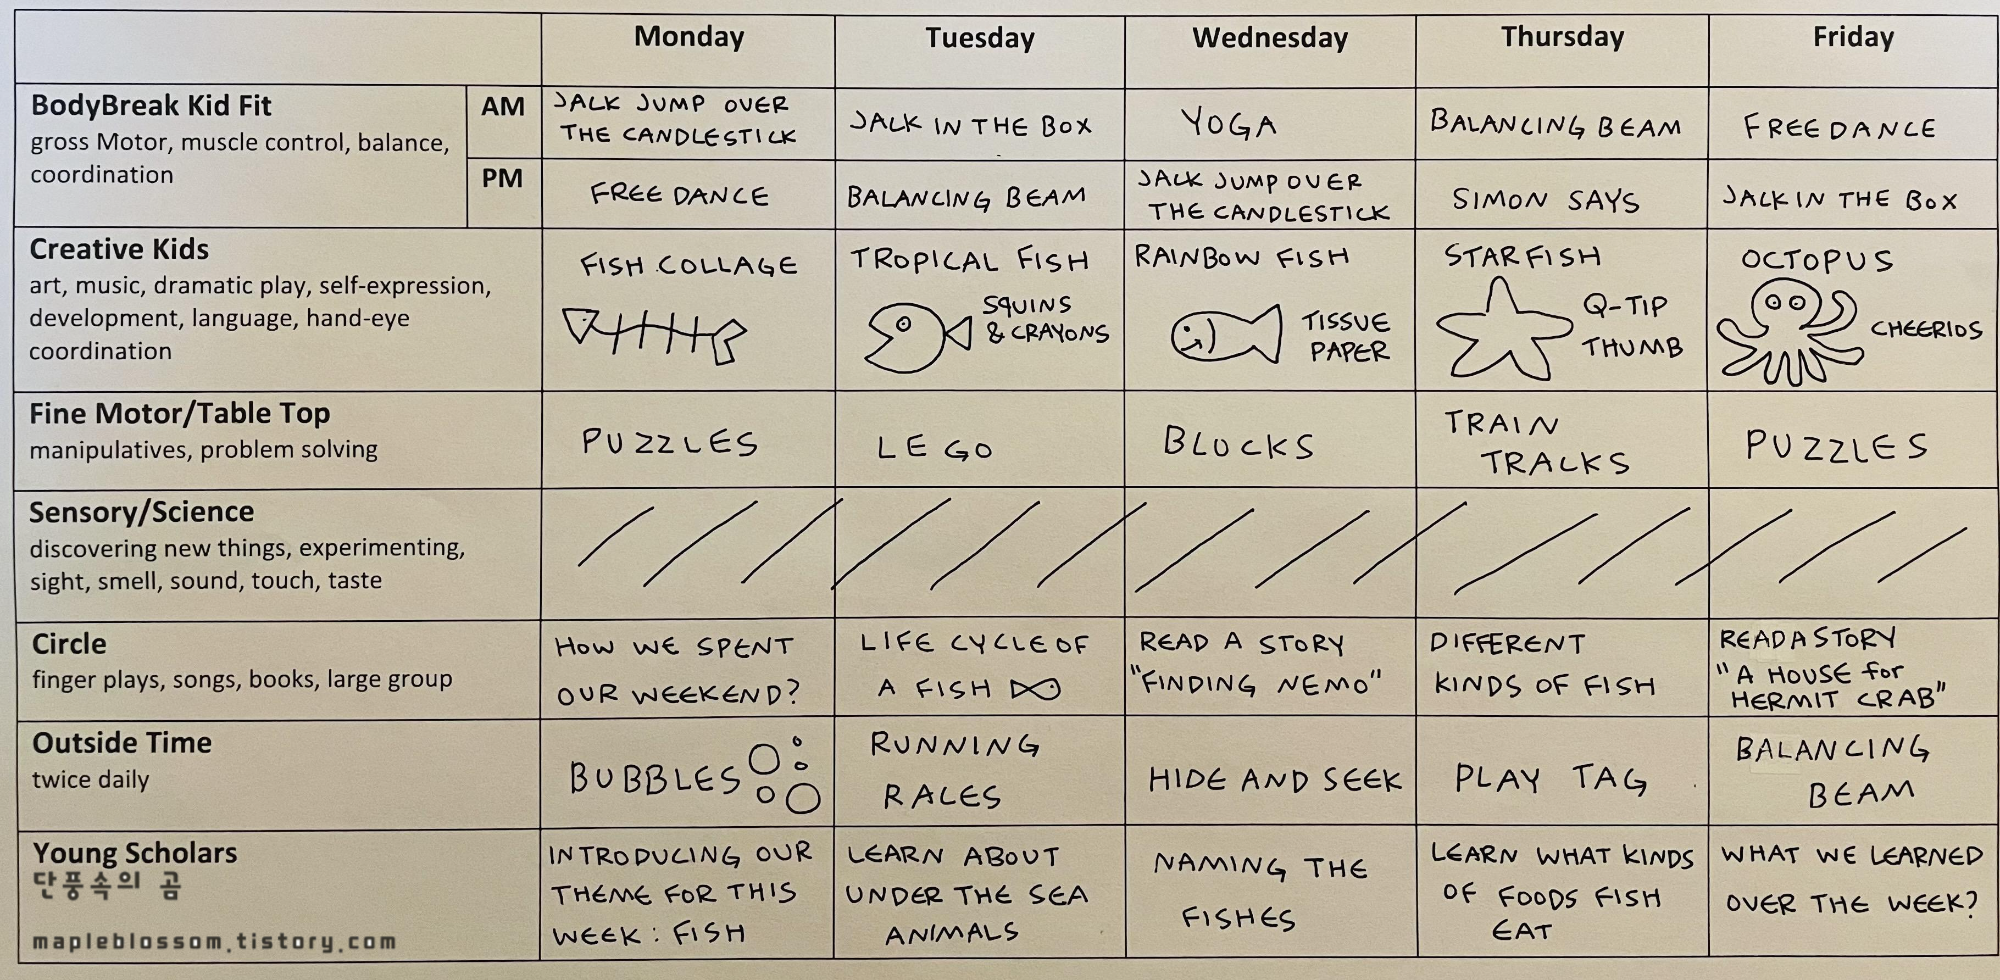 Monday Tuesday Wednesday Thursday Friday
BodyBreak Kid Fit
gross Motor, muscle control, balance,
coordination
AM
JACK JUMP OVER
THE CANDLESTICK
JACK IN THE BOX
YOGA
BALANCING BEAM
FREE DANCE
PM
FREE DANCE
BALANCING BEAM
JACK JUMP OVER
THE CANDLESTICK
SIMON SAYS
JACK IN THE BOX
Creative Kids
art, music, dramatic play, self-expression,
development, language, hand-eye
coordination
FISH COLLAGE
TROPICAL FISH
SQUINS
& CRAYONS
RAINBOW FISH
TISSUE
PAPER
STARFISH
Q-TIP
THUMB
OCTOPUS
CHEERIOS
Fine Motor/Table Top
manipulatives, problem solving
PUZZLES
LEGO
BLOCKS
TRAIN
TRACKS
PUZZLES
Sensory/Science
discovering new things, experimenting,
sight, smell, sound, touch, taste
Circle
finger plays, songs, books, large group
HOW WE SPENT
OUR WEEKEND?
LIFE CYCLE OF
A FISH
READ A STORY
"FINDING NEMO"
DIFFERENT
KINDS OF FISH
READ A STORY
"A HOUSE for
HERMIT CRAB"
Outside Time
twice daily
BUBBLES
RUNNING
RACES
HIDE AND SEEK
PLAY TAG
BALANCING
BEAM
Young Scholars
단풍속의 곰
mapleblossom.tistory.com
INTRODUCING OUR
THEME FOR THIS
WEEK: FISH
LEARN ABOUT
UNDER THE SEA
ANIMALS
NAMING THE
FISHES
LEARN WHAT KINDS
OF FOODS FISH
EAT
WHAT WE LEARNED
OVER THE WEEK?